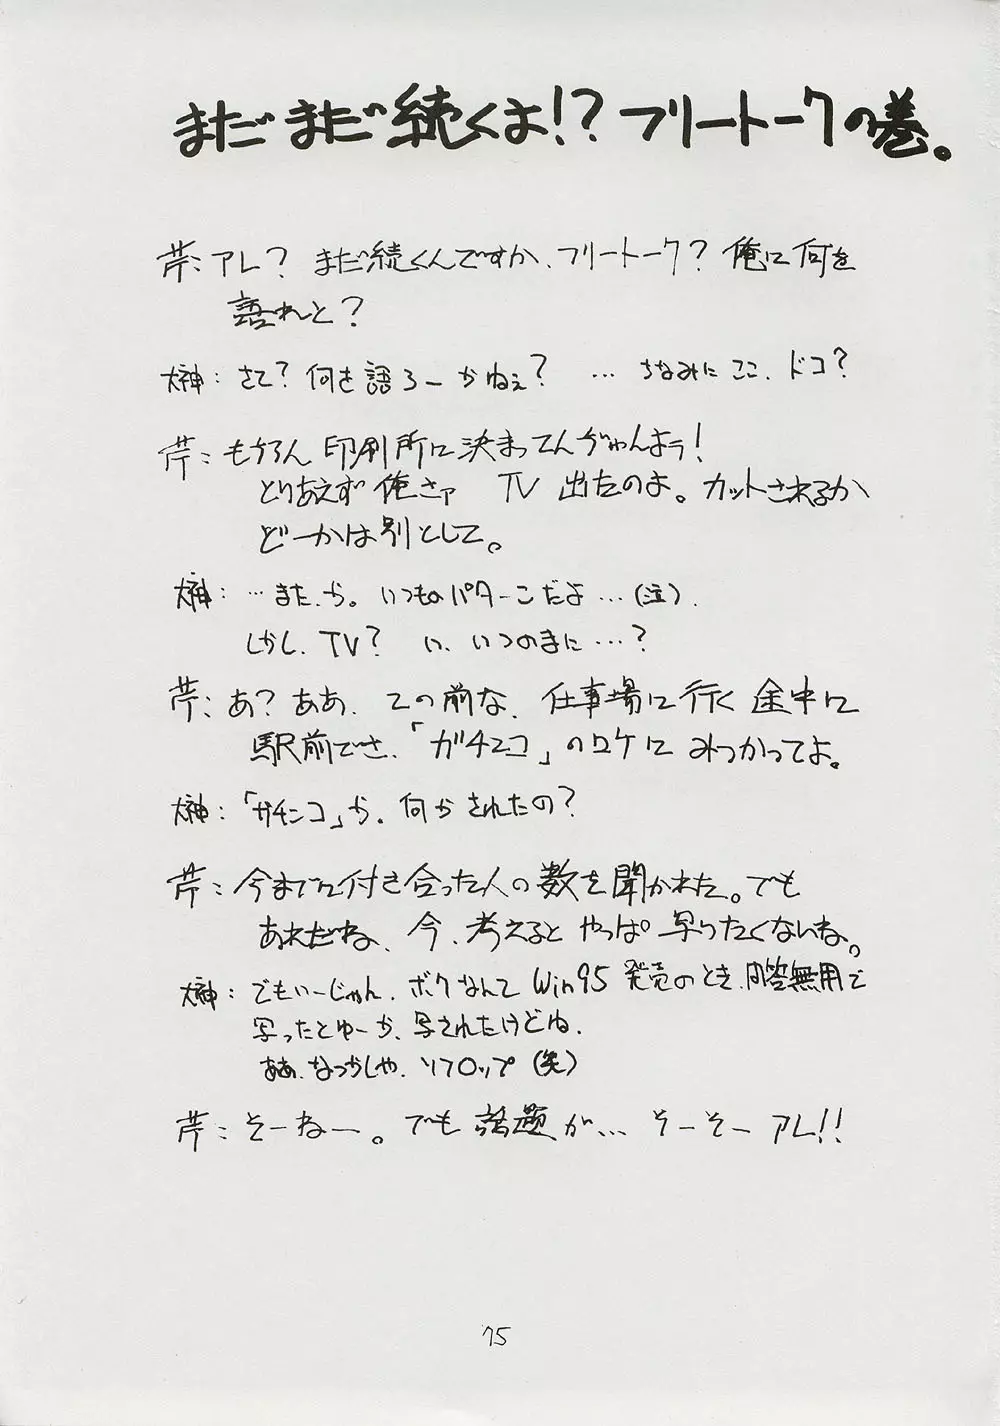 まだまだ続くよ!? フリートークの巻。
芹:アレ? まだ続くんですか、フリートーク? 俺に何を
語れと?
大神:さて? 何を語ろーかねぇ? … ちなみにココ、ドコ?
芹:もちろん 印刷所に決まってんぢゃんよう!
とりあえず 俺さァ TV 出たのよ。カットされるか
どーかは別として。
大神:…また、か。いつものパターンだよ…(泣)。
しかし、TV? い、いつのまに…?
芹:あ? ああ、この前な、仕事場に行く途中に
駅前でさ、「ガチンコ」のロケに みつかってよ。
大神:「ガチンコ」か。何かされたの?
芹:今までに付き合った人の数を聞かれた。でも
あれだね、今、考えると やっぱ 写りたくないね。
大神:でもいーじゃん、ボクなんて Win95 発売のとき、問答無用で
写ったとゆーか、写されたけどね。
ああ、なつかしや、ソフロップ(笑)
芹:そーねー。でも 話題が… そーそー アレ!!
75